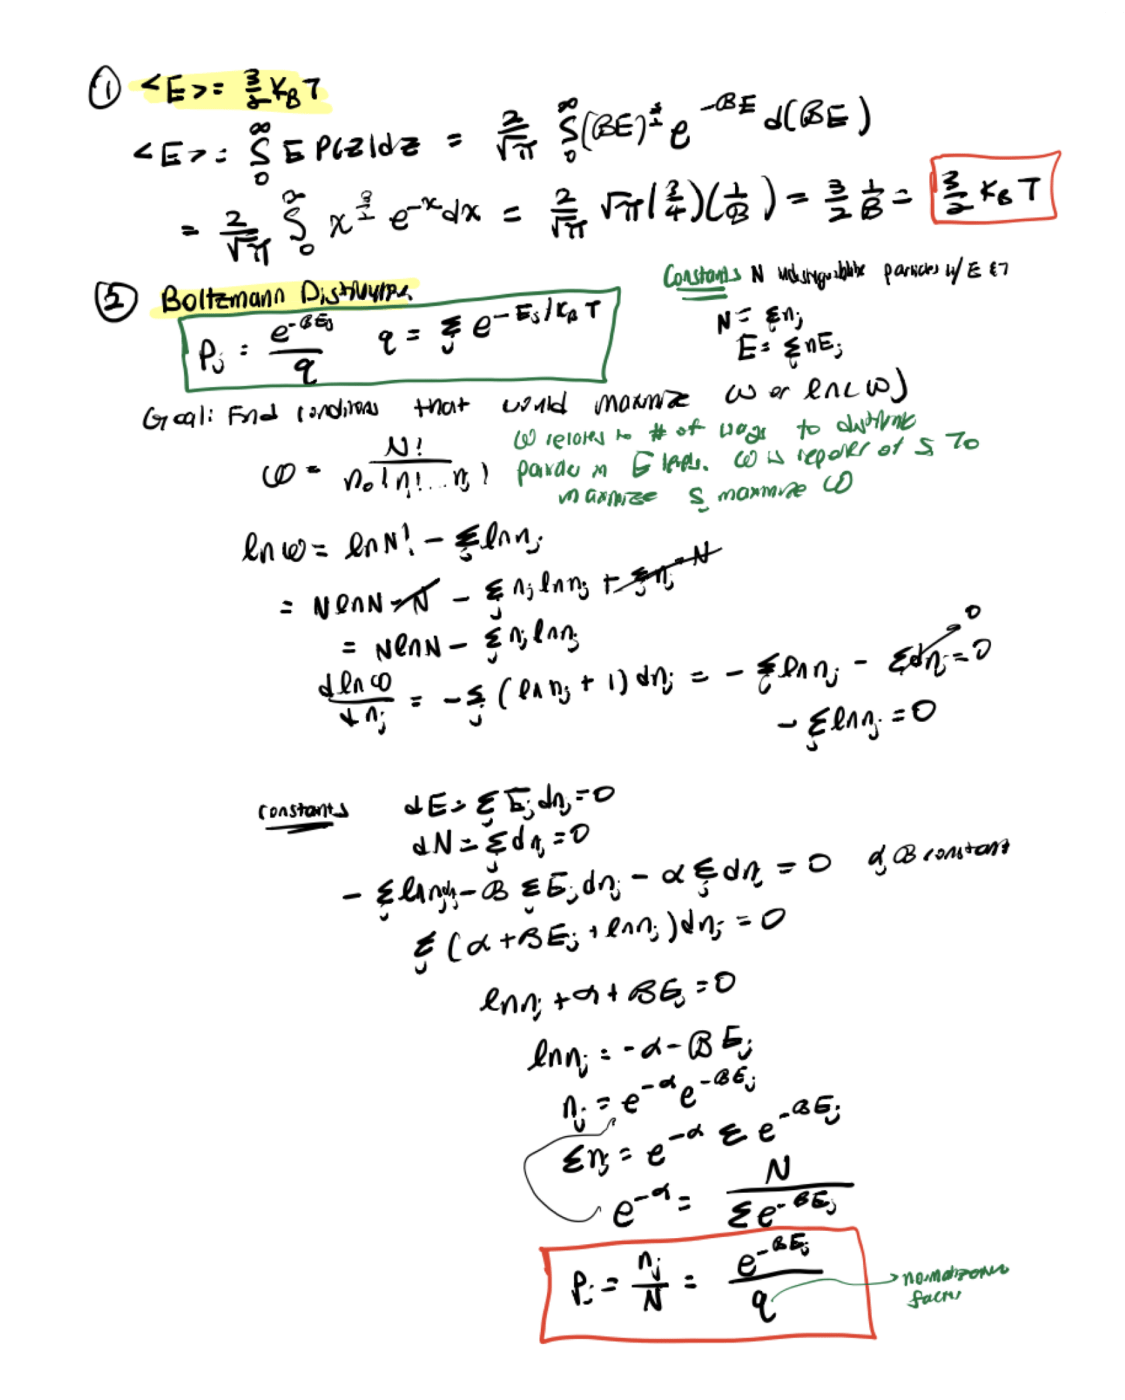 ① <E> = 3/2 K_B T
<E> = ∫₀^∞ E P(z)dz = 2/√π ∫₀^∞ (BE)^{3/2} e^{-BE} d(BE)
= 2/√π ∫₀^∞ x^{3/2} e^{-x} dx = 2/√π √π (3/4)(1/B) = 3/2 1/B = 3/2 K_B T
② Boltzmann Distribution
Constants N indistinguishable particles w/ E
P_j = e^{-BE_j}/q q = Σ_j e^{-E_j/K_B T}
N = Σn_j
E = Σ nE_j
Goal: Find conditions that would maximize ω or ln(ω)
ω = N!/n₀!n₁!...n_j!
ω relates to # of ways to distribute
particles in E levels. ω is of S To
maximize S, maximize ω
ln ω = ln N! - Σ_j ln n_j
= N ln N - N - Σ_j n_j ln n_j + Σ n_j = N
= N ln N - Σ_j n_j ln n_j
d ln ω/d n_j = -Σ_j (ln n_j + 1) dn_j = - Σ_j ln n_j - Σ dn_j = 0 0
- Σ_j ln n_j = 0
constants dE = Σ_j E_j dn_j = 0
dN = Σ_j dn_j = 0
- Σ_j ln n_j dn_j - B Σ_j E_j dn_j - α Σ_j dn_j = 0 α, B constant
Σ_j (α + BE_j + ln n_j) dn_j = 0
ln n_j + α + BE_j = 0
ln n_j = -α - B E_j
n_j = e^{-α} e^{-BE_j}
Σn_j = e^{-α} Σ e^{-BE_j}
e^{-α} = N/Σe^{-BE_j}
P_j = n_j/N = e^{-BE_j}/q
normalization
factor